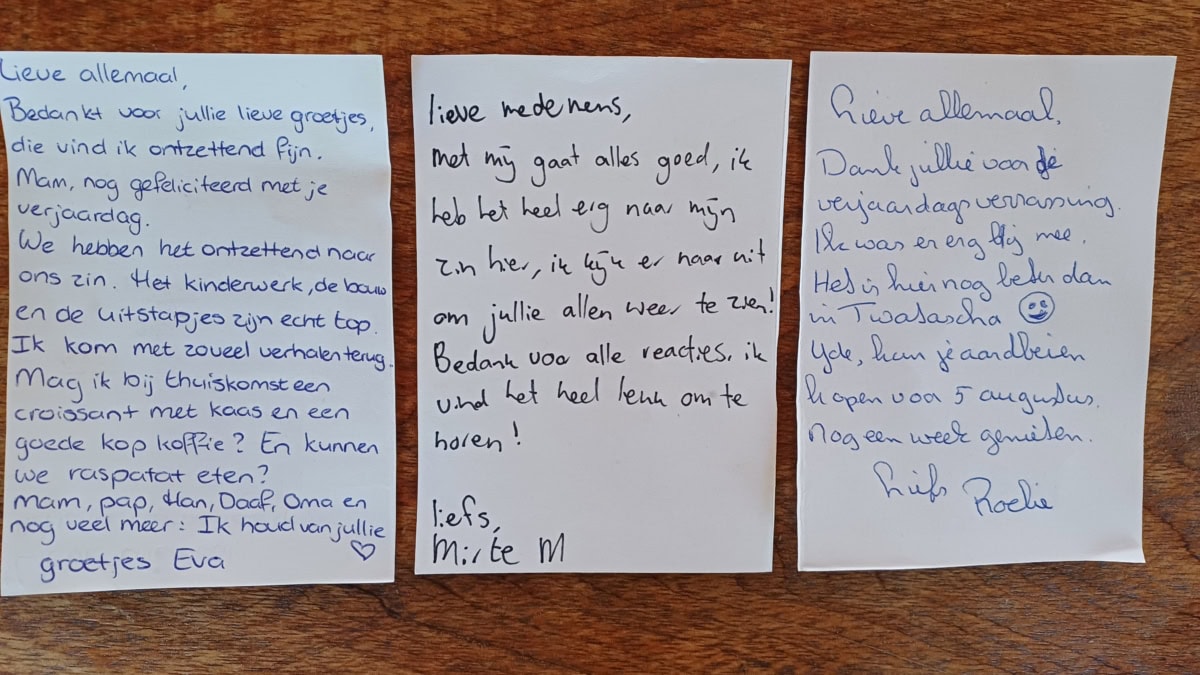 Lieve allemaal,
Bedankt voor jullie lieve groetjes,
die vind ik ontzettend fijn.
Mam, nog gefeliciteerd met je
verjaardag.
We hebben het ontzettend naar
ons zin. Het kinderwerk, de bouw
en de uitstapjes zijn echt top.
Ik kom met zoveel verhalen terug.
Mag ik bij thuiskomst een
croissant met kaas en een
goede kop koffie? En kunnen
we raspatat eten?
Mam, pap, Han, Daaf, Oma en
nog veel meer: Ik houd van jullie
groetjes Eva ♡
lieve medemens,
met mij gaat alles goed, ik
heb het heel erg naar mijn
zin hier, ik kijk er naar uit
om jullie allen weer te zien!
Bedank voor alle reacties, ik
vind het heel leuk om te
horen!
liefs,
Mirte M
Lieve allemaal,
Dank jullie voor de
verjaardagsverrassing.
Ik was er erg blij mee.
Het is hier nog beter dan
in Twatascha
Yde, kan je aardbeien
kopen voor 5 augustus.
Nog een week genieten.
Liefs Roelie